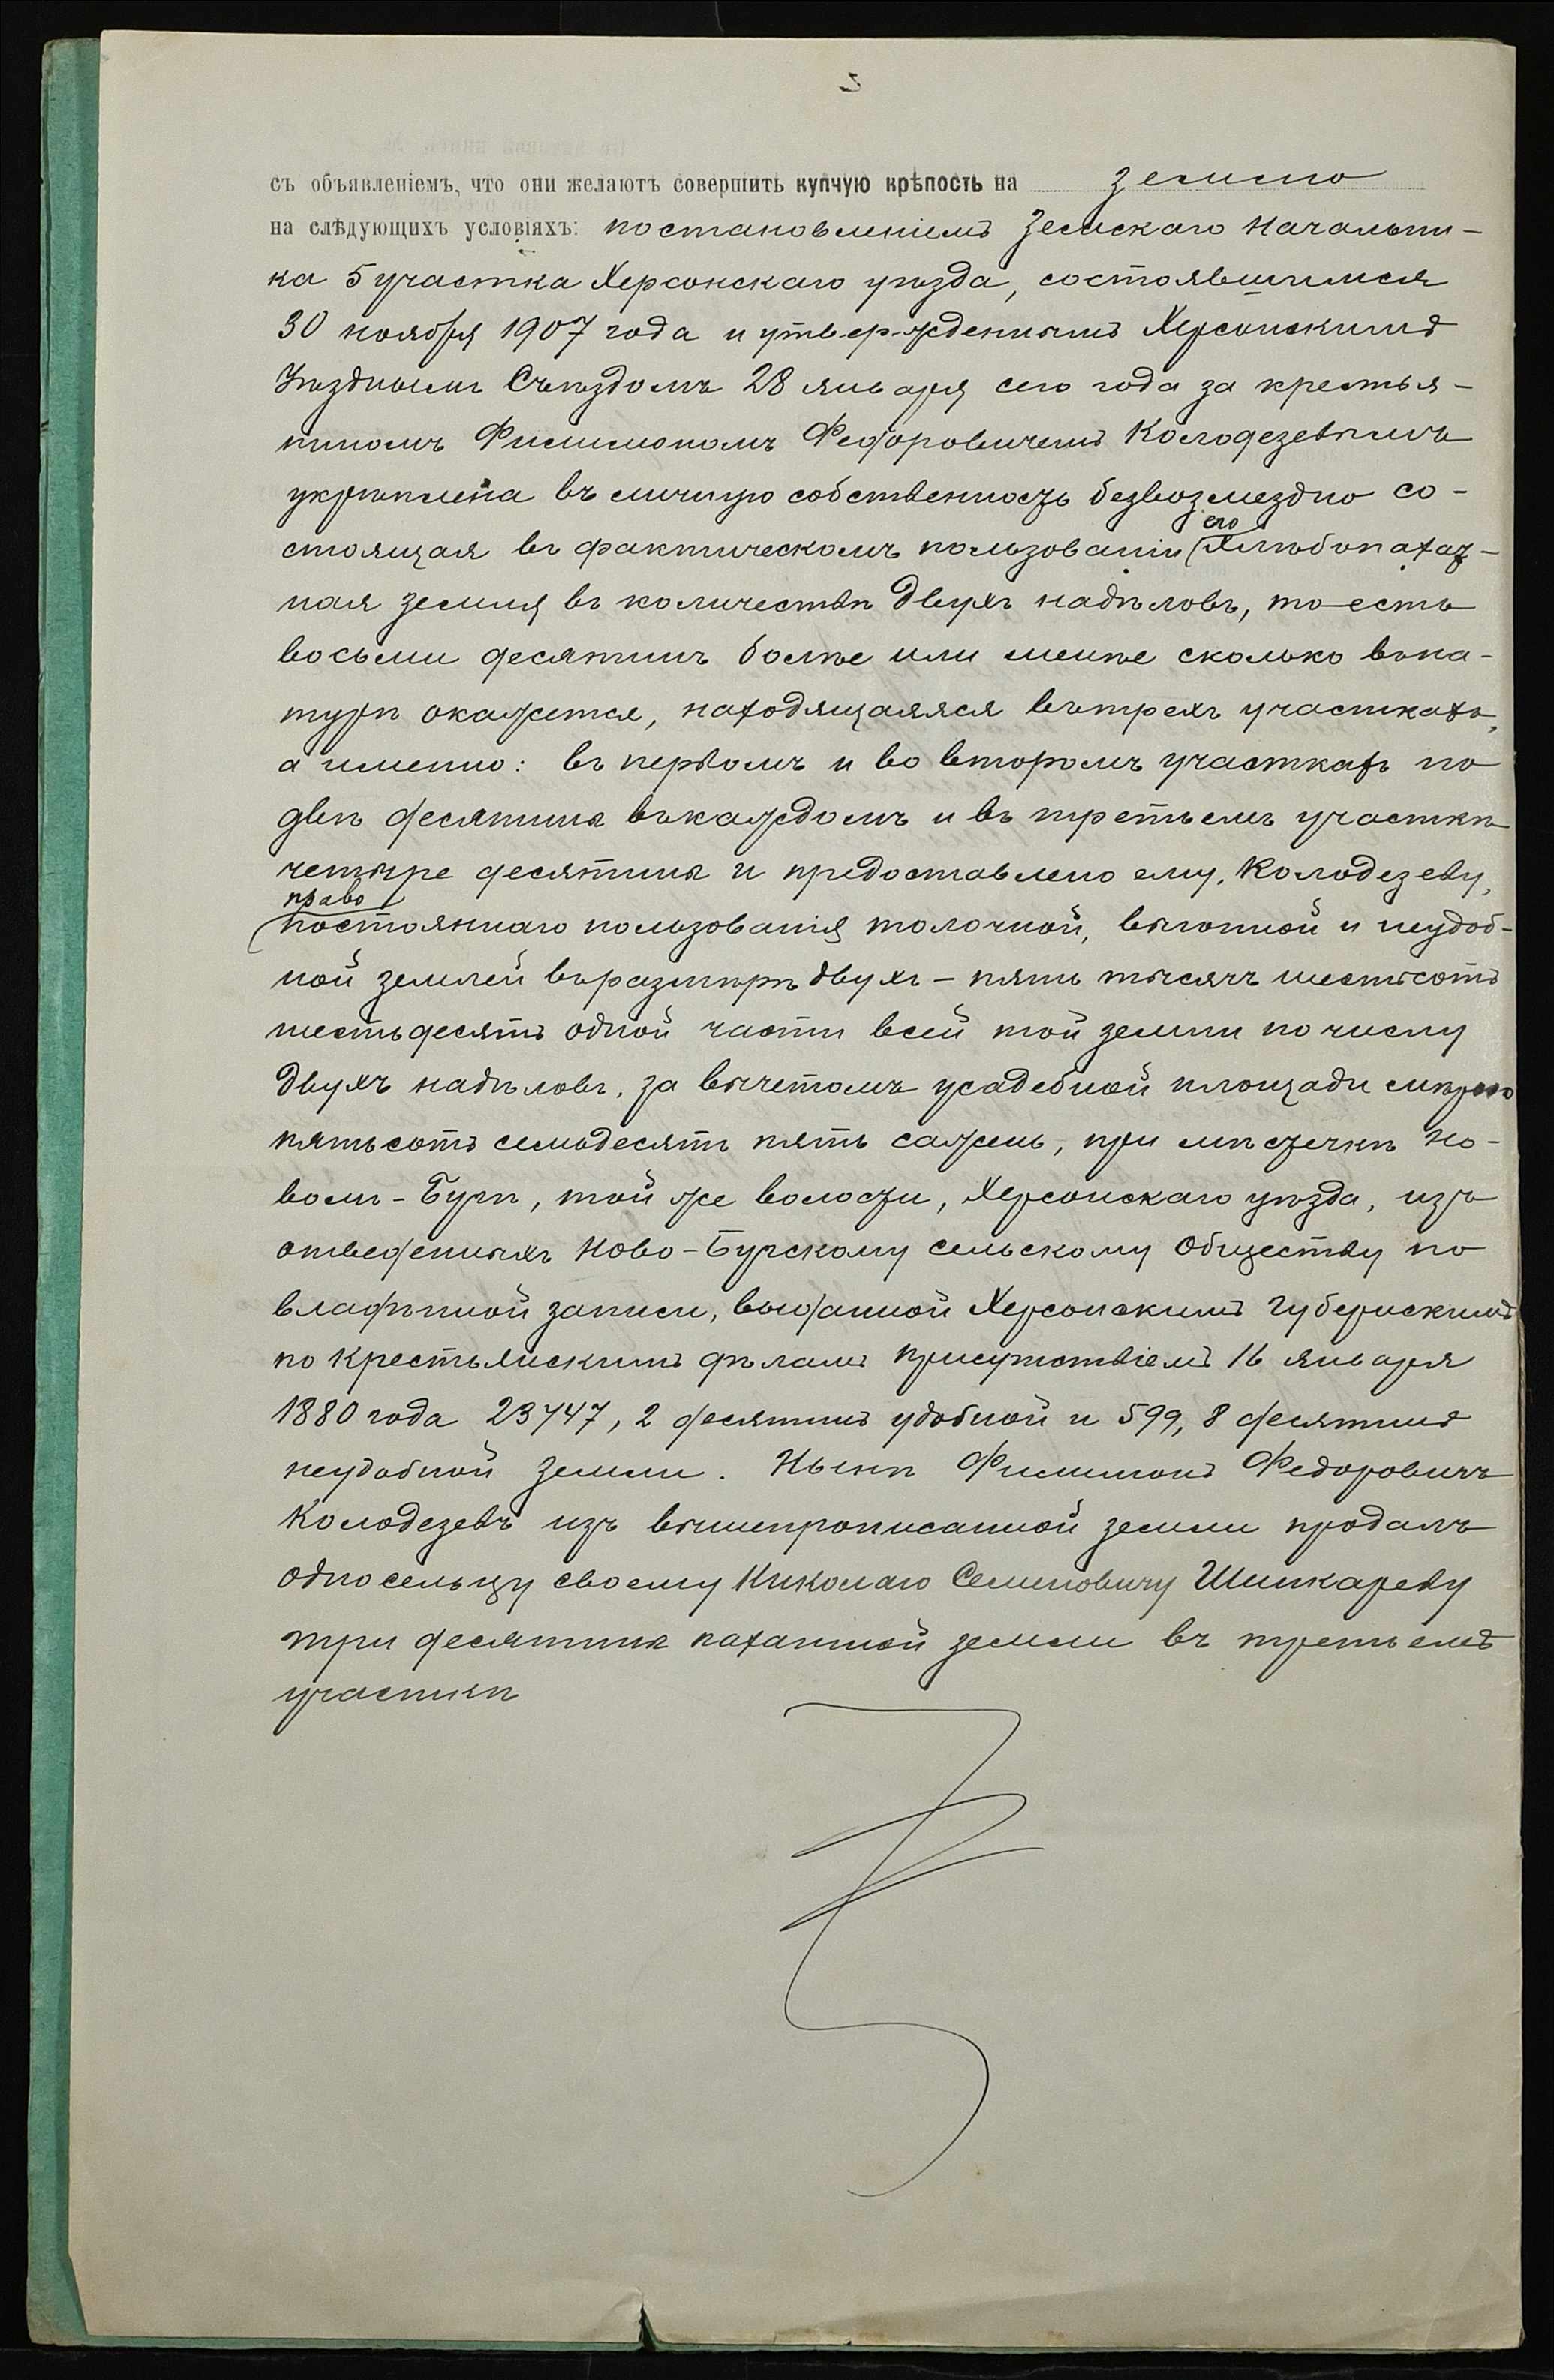 3
съ объявленіемъ, что они желаютъ совершить купчую крѣпость на землю
на слѣдующихъ условіяхъ: постановленіемъ Земскаго Начальни-
ка 5 участка Херсонскаго уѣзда, состоявшимся
30 ноября 1907 года и утвержденнымъ Херсонскимъ
Уѣзднымъ Съѣздомъ 28 января сего года за крестья-
ниномъ Филимономъ Федоровичемъ Колодезевымъ
укрѣплена въ личную собственность безвозмездно со-
его
стоящая въ фактическомъ пользованіи хлѣбопахат-
ная земля въ количествѣ двухъ надѣловъ, то-есть
восьми десятинъ болѣе или менѣе сколько въ на-
турѣ окажется, находящаяяся въ трехъ участкахъ,
а именно: въ первомъ и во второмъ участкахъ по
двѣ десятины въ каждомъ и въ третьемъ участкѣ
четыре десятины и предоставлено ему, Колодезеву,
право
постояннаго пользованія толочной, выгонной и неудоб-
ной землей въ размѣрѣ двухъ - пяти тысячъ шестьсотъ
шестьдесятъ одной части всей той земли по числу
двухъ надѣловъ, за вычетомъ усадебной площади мѣрою
пятьсотъ семьдесятъ пять сажень, при мѣстечкѣ Но-
вомъ-Бугѣ, той же волости, Херсонскаго уѣзда, изъ
отведенныхъ Ново-Бугскому сельскому Обществу по
владѣнной записи, выданной Херсонскимъ Губернскимъ
по крестьянскимъ дѣламъ присутствіемъ 16 января
1880 года 23747,2 десятинъ удобной и 599,8 десятинъ
неудобной земли. Нынѣ Филимонъ Федоровичъ
Колодезевъ изъ вышепрописанной земли продалъ
односельцу своему Николаю Семеновичу Шинкареву
три десятины паханной земли въ третьемъ
участкѣ